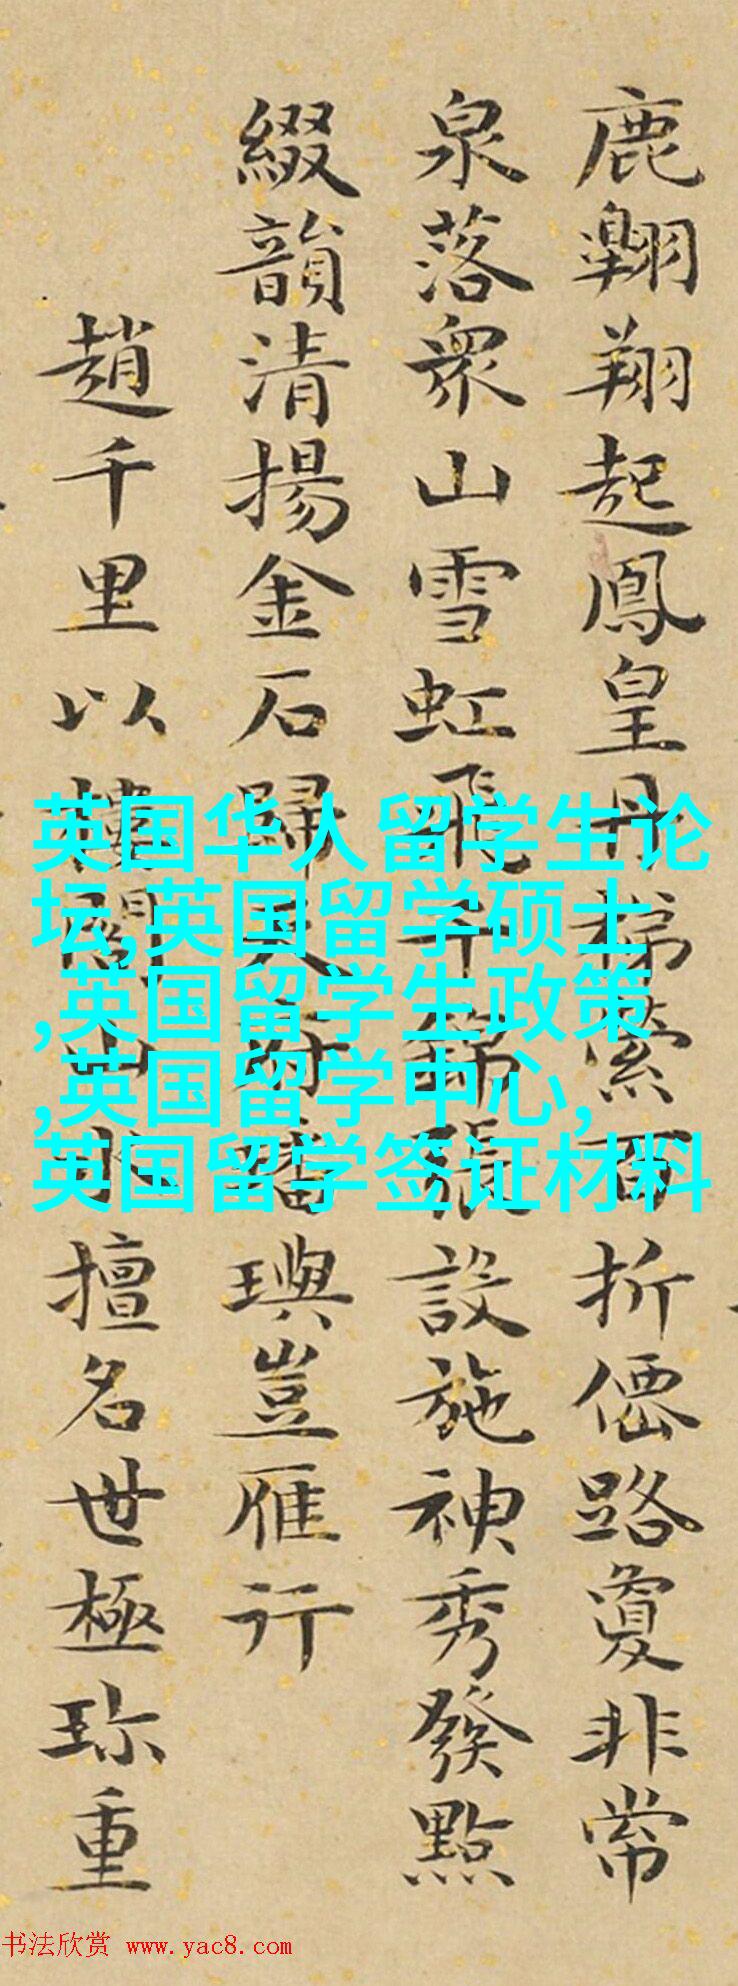 鹿翺翔起鳳皇丹梯縈百折僊路夐非常
泉落衆山雪虹飛千錦張設施神秀發點
綴韻清揚金石歸天府璠璵豈雁行
趙千里以樓閣山水擅名世極珎重
英国华人留学生论
坛,英国留学硕士
,英国留学生政策
,英国留学中心,
英国留学签证材料
书法欣赏 www.yac8.com